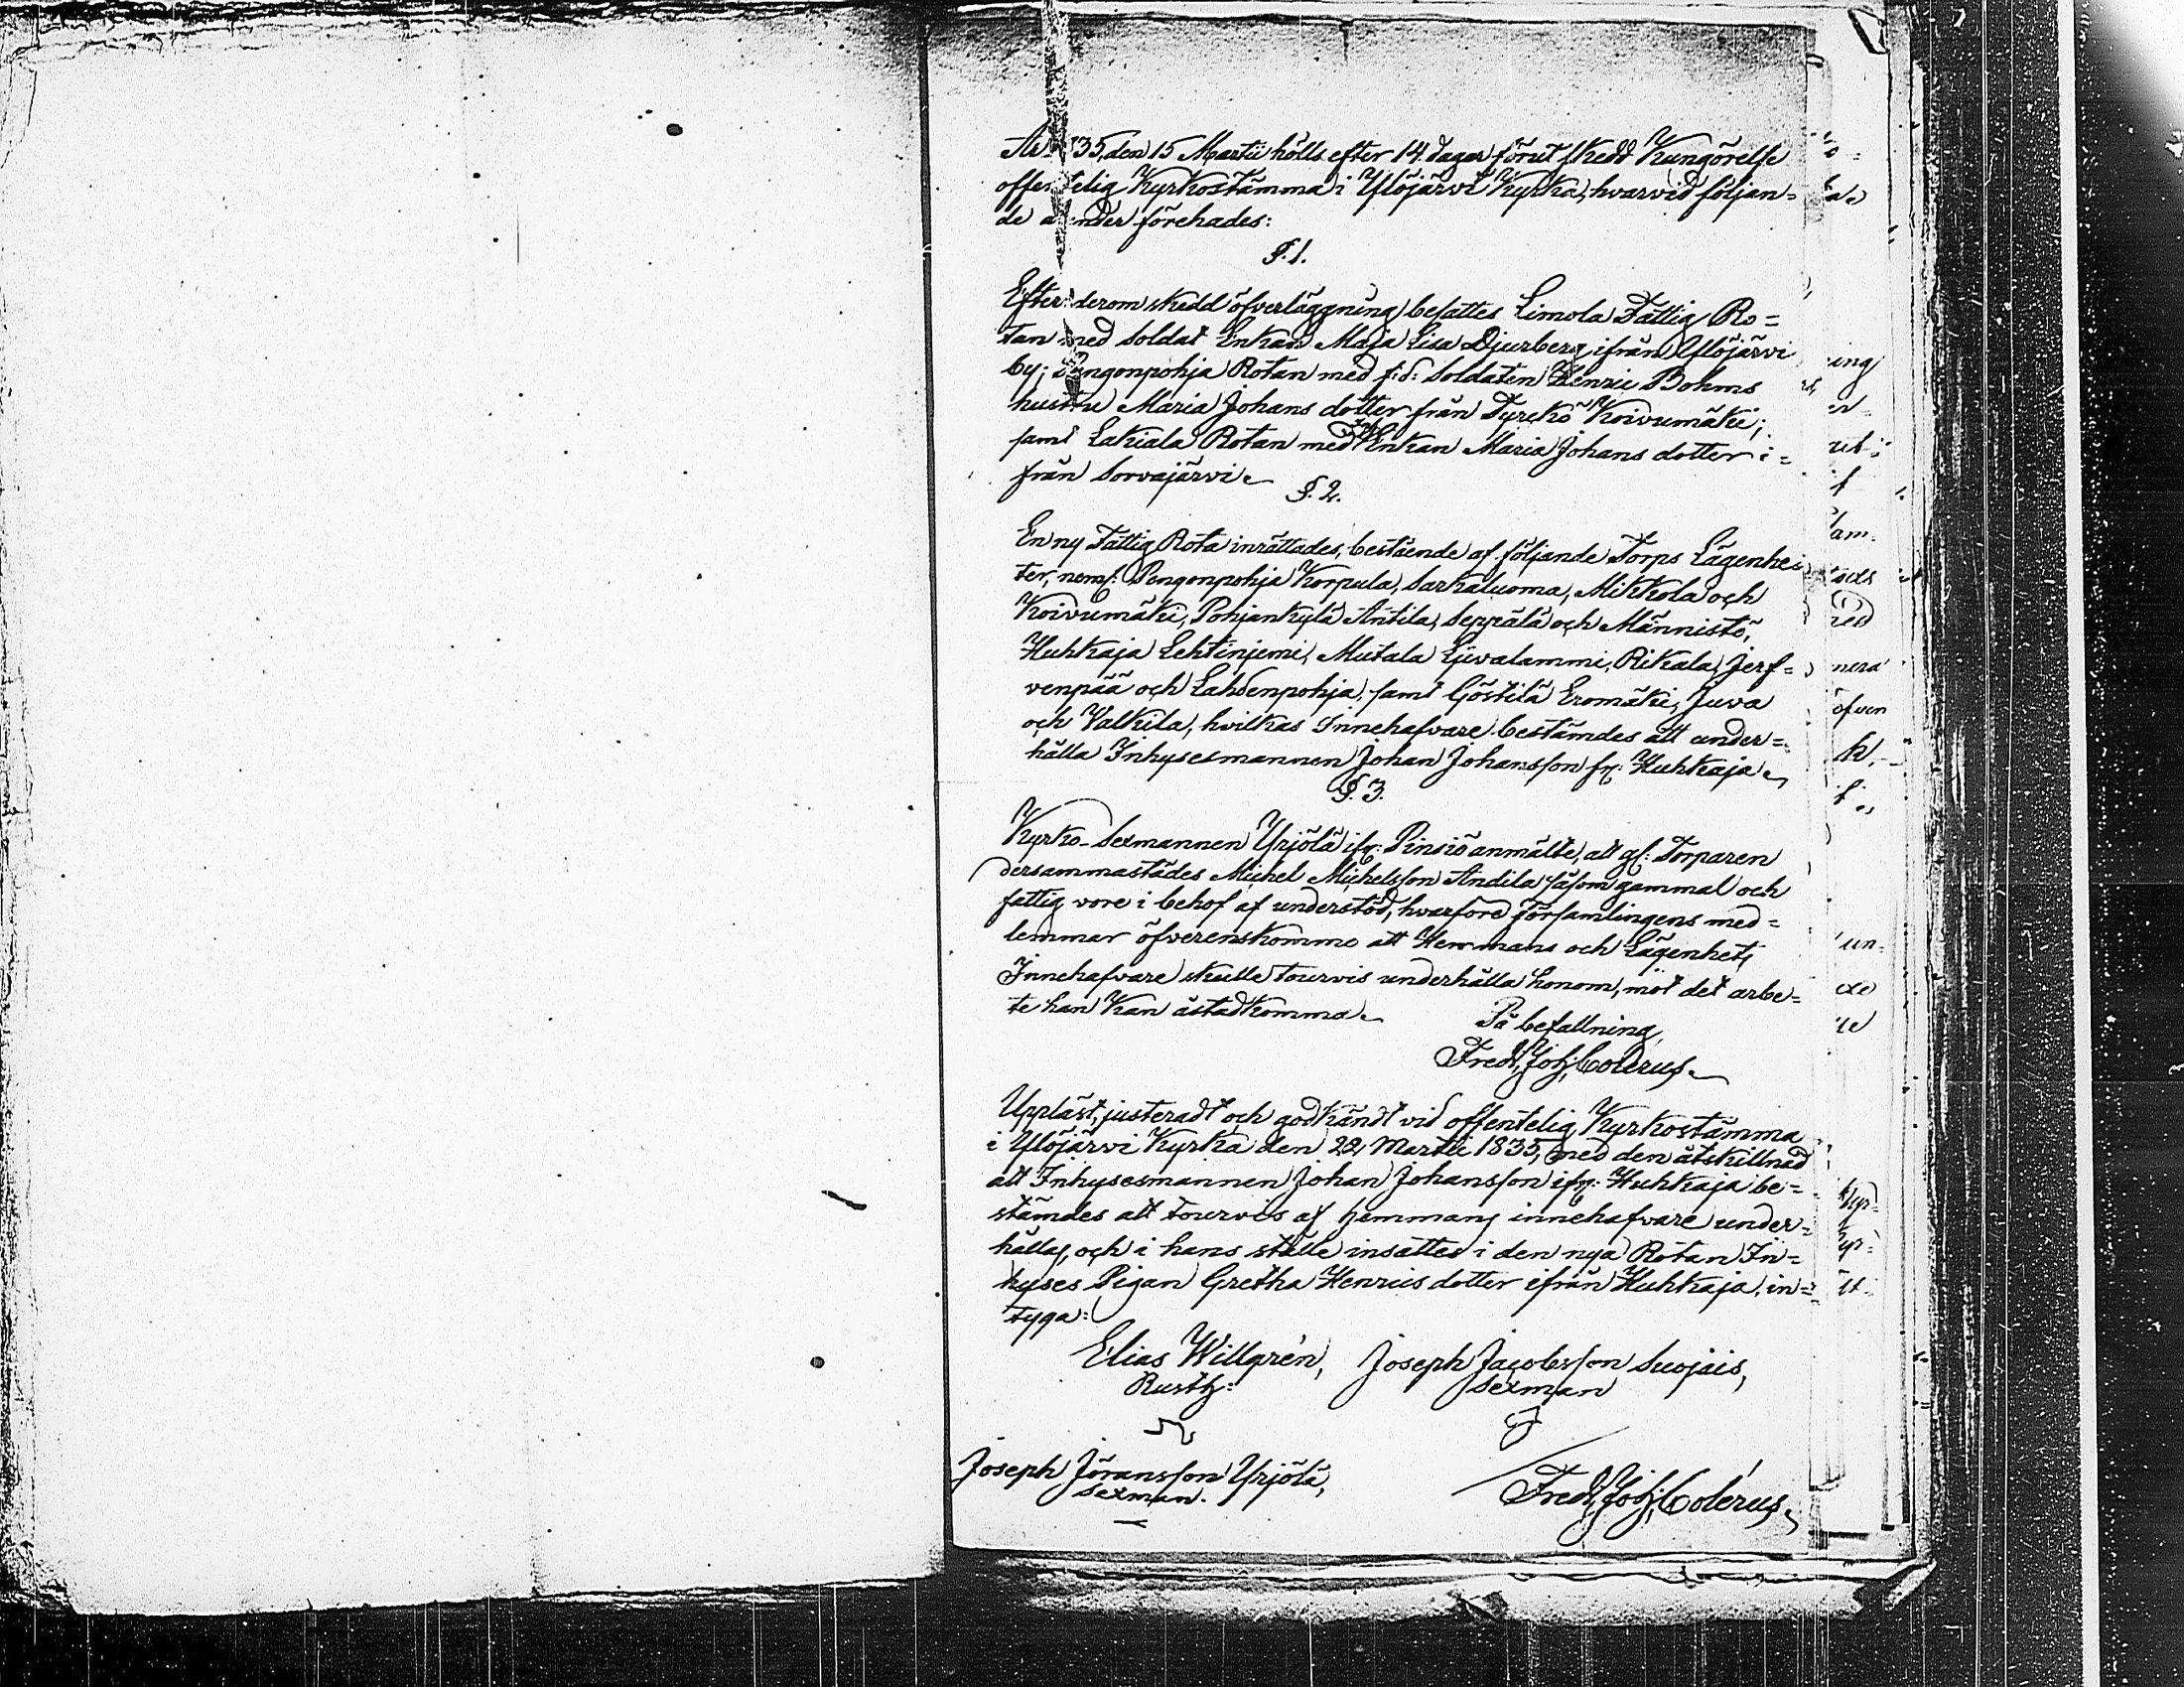 År 1835, den 15 Martii hölls efter 14. dagar förut skedd Kungörelse
offentelig Kyrkostämma i Ylöjärvi Kyrka, hvarvid följan=
de ärender förehades:
§. 1.
Efter derom skedd öfverläggning besattes Limola Fattig Ro=
tan med Soldat Enkan Maja Lisa Djurberg ifrån Ylöjärvi
by; Pengonpohja Rotan med f:d: Soldaten Henric Bohms
hustru Maria Johans dotter från Tyrckö Koivumäki;
samt Lakiala Rotan med Enkan Maria Johans dotter i=
från Sorvajärvi
§. 2.
En ny Fattig Rota inrättades, bestående af följande Torps Lägenhe=
ter, neml: Pengonpohja Korpula, Sarkaluoma, Mikkola och
Koivumäki, Pohjankylä Antila, Seppälä och Männistö,
Huhkaja Lehtinjemi, Mutala Ljivalammi, Rikala, Jerf=
venpää och Lahdenpohja, samt Göstilä Eromäki, Juva
och Valkila, hvilkas Innehafvare bestämdes att under=
hålla Inhysesmannen Johan Johansson fr: Huhkaja
§. 3.
Kyrko-Sexmannen Yrjölä ifr: Pinsiö anmälte, att gl: Torparen
dersammastädes Michel Michelsson Andila såsom gammal och
fattig vore i behof af understöd, hvarföre Församlingens med=
lemmar öfverenskommo att Hemmans och Lägenhets
Innehafvare skulle tourvis underhålla honom, mot det arbe=
te han kan åstadkomma
På befallning,
Fredr. Joh. Colerus
Uppläst, justeradt och godkändt vid offentelig Kyrkostämma
i Ylöjärvi Kyrka den 22 Martii 1835, med den åtskillnad
att Inhysesmannen Johan Johansson ifr: Huhkaja be=
stämdes att tourvis af hemmans innehafvare under=
hållas, och i hans ställe insattes i den nya Rotan In=
hyses Pigan Gretha Henrics dotter ifrån Huhkaja, in=
tyga:
Elias Willgrén, Joseph Jacobsson Suojais,
Rusth: Sexman
Joseph Jöransson Yrjölä,
Sexman.
Fredr. Joh. Colérus